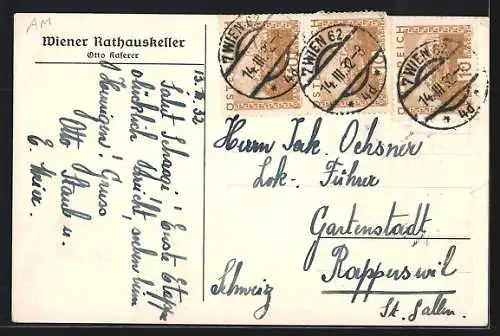 AM
Wiener Rathauskeller
Otto Kaserer
13. III. 32
Salut Schaagi! Erste Etappe
glücklich erreicht, neben beim
Heurigen! Gruss
Otto Staub u.
E. Meier.
7 WIEN 62
14. III. 32
* 4d *
ÖSTERREICH
7 WIEN 62
14. III. 32-8
* 4d *
7 WIEN 62
14. III. 32
* 4d *
10
Herrn Jak. Ochsner
Lok-Führer
Gartenstadt
Rapperswil
St. Gallen.
Schweiz